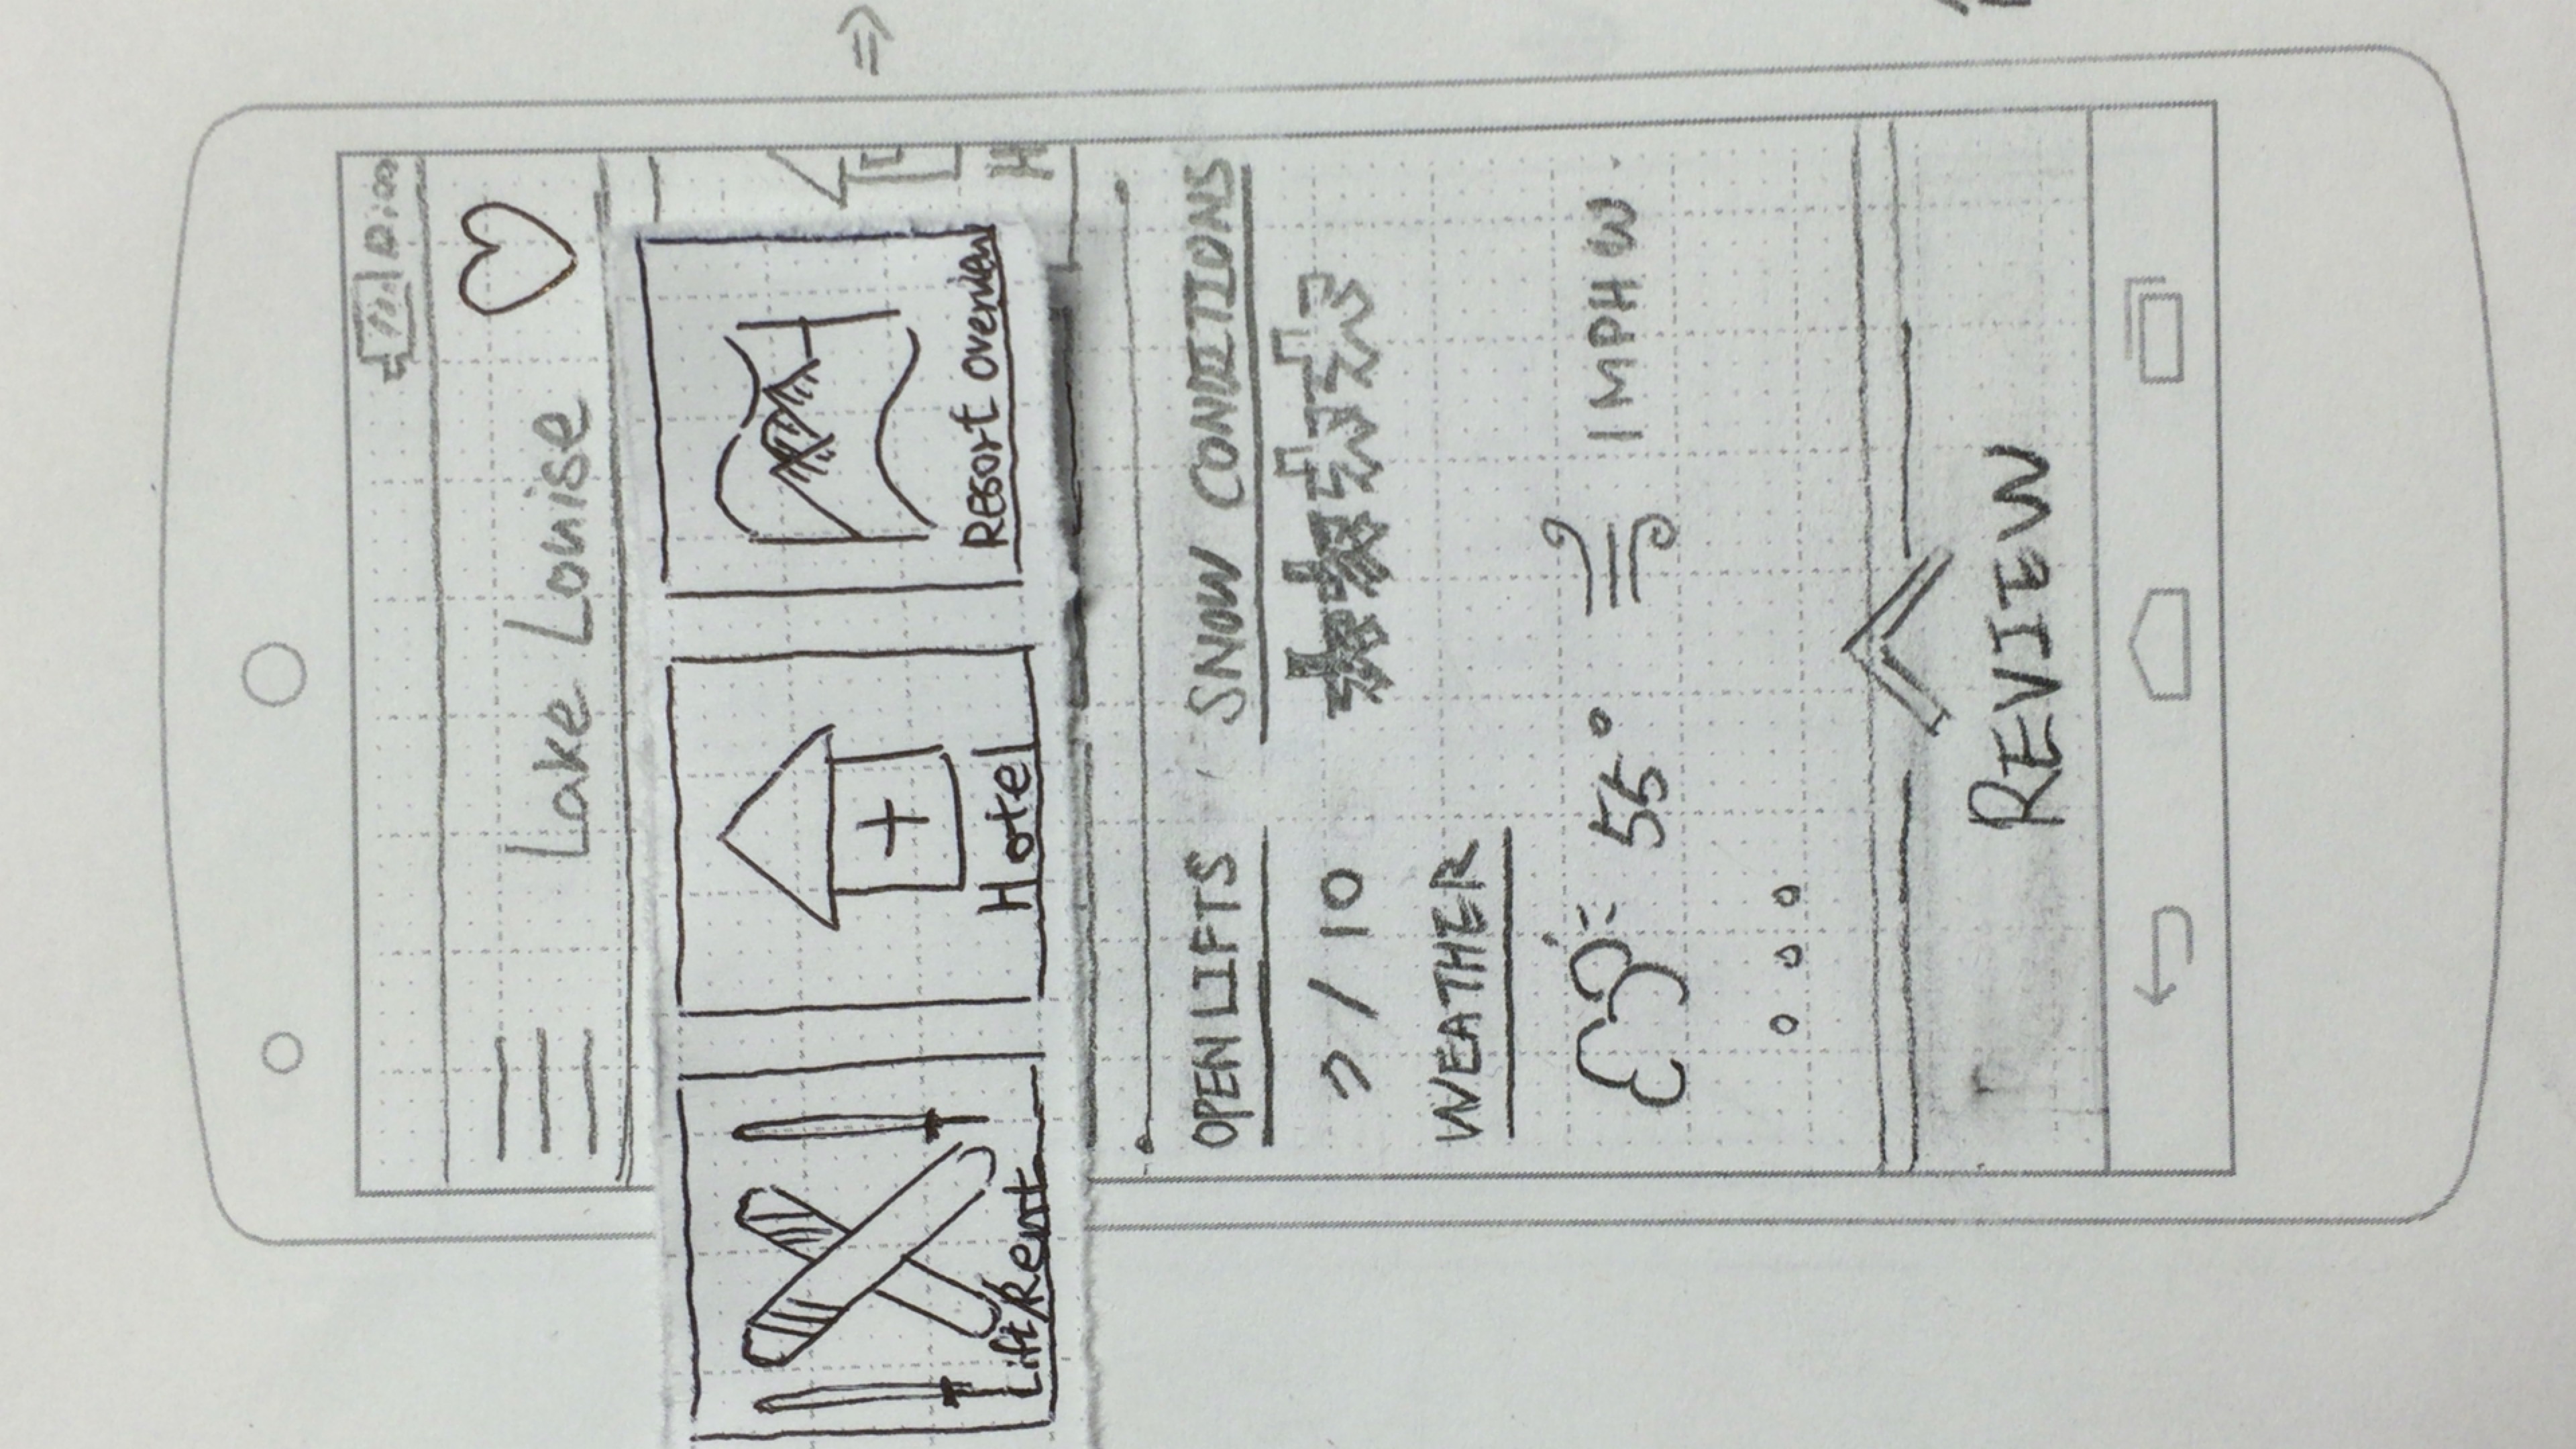 Lake Louise
Lift/Rent
Hotel
Resort Overview
H
OPEN LIFTS
SNOW CONDITIONS
/ 10
WEATHER
55°
1 MPH W
REVIEW